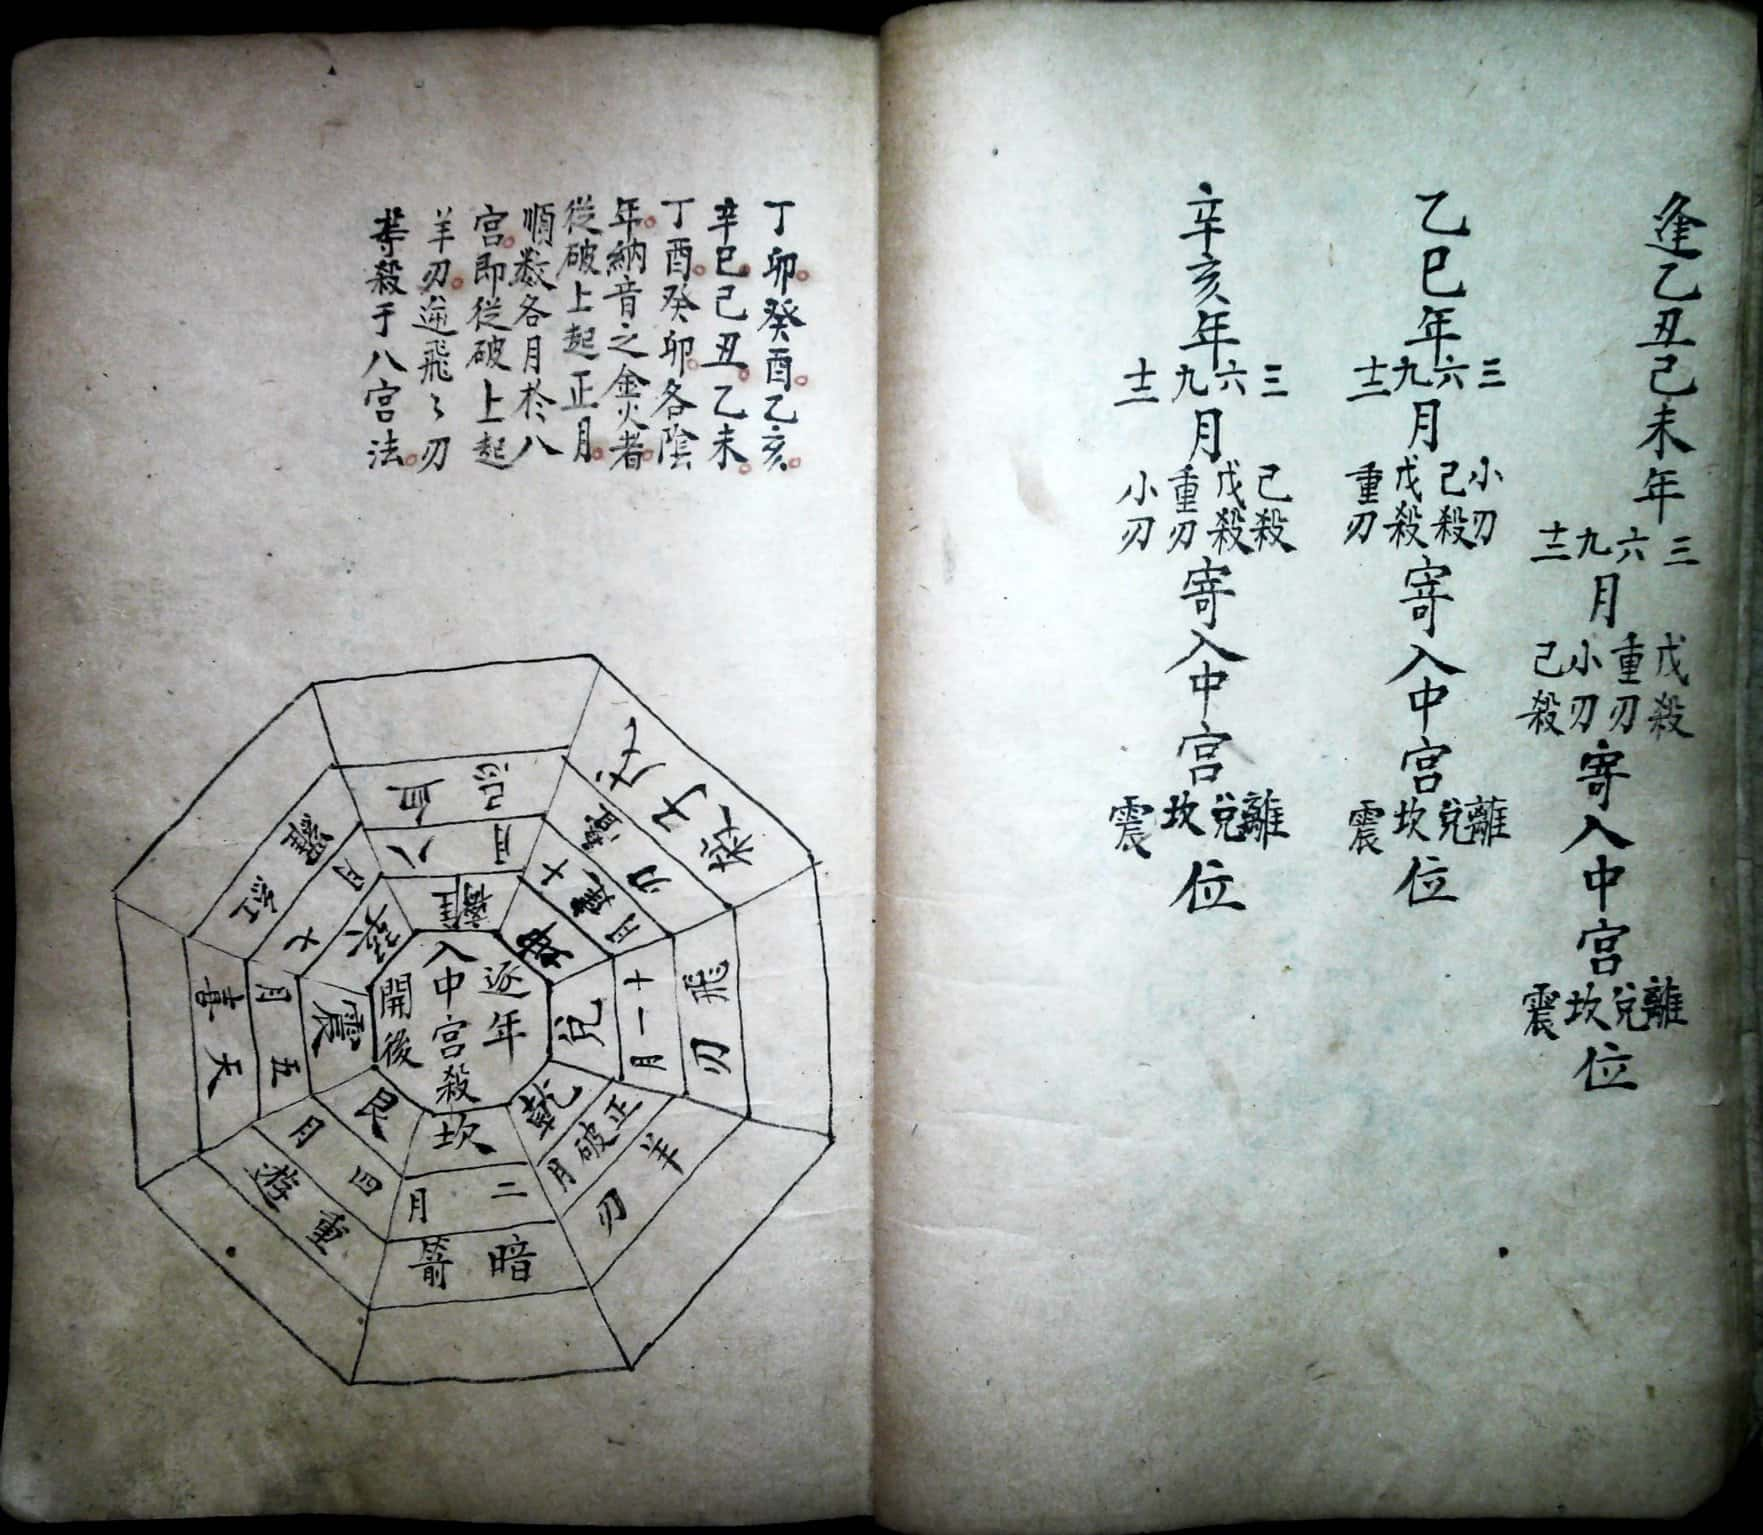 逢乙丑己未年
三六九十二
月
戊殺重刃小刃己殺
寄入中宮
離兌坎震
位
乙巳年
三六九十二
月
小刃己殺戊殺重刃
寄入中宮
離兌坎震
位
辛亥年
三六九十二
月
己殺戊殺重刃小刃
寄入中宮
離兌坎震
位
丁卯癸酉乙亥
辛巳己丑乙未
丁酉癸卯各陰
年納音之金火者
從破上起正月
順数各月於八
宮即從破上起
羊刃逆飛〻刃
等殺于八宮法
逐年
入中宮殺
開後
離
八月
血忌
坤
十月
刃
殺
兌
十一月
飛刃
乾
正月
破
羊刃
坎
二月
暗箭
艮
四月
重遊
震
五月
天喜
巽
七
紅